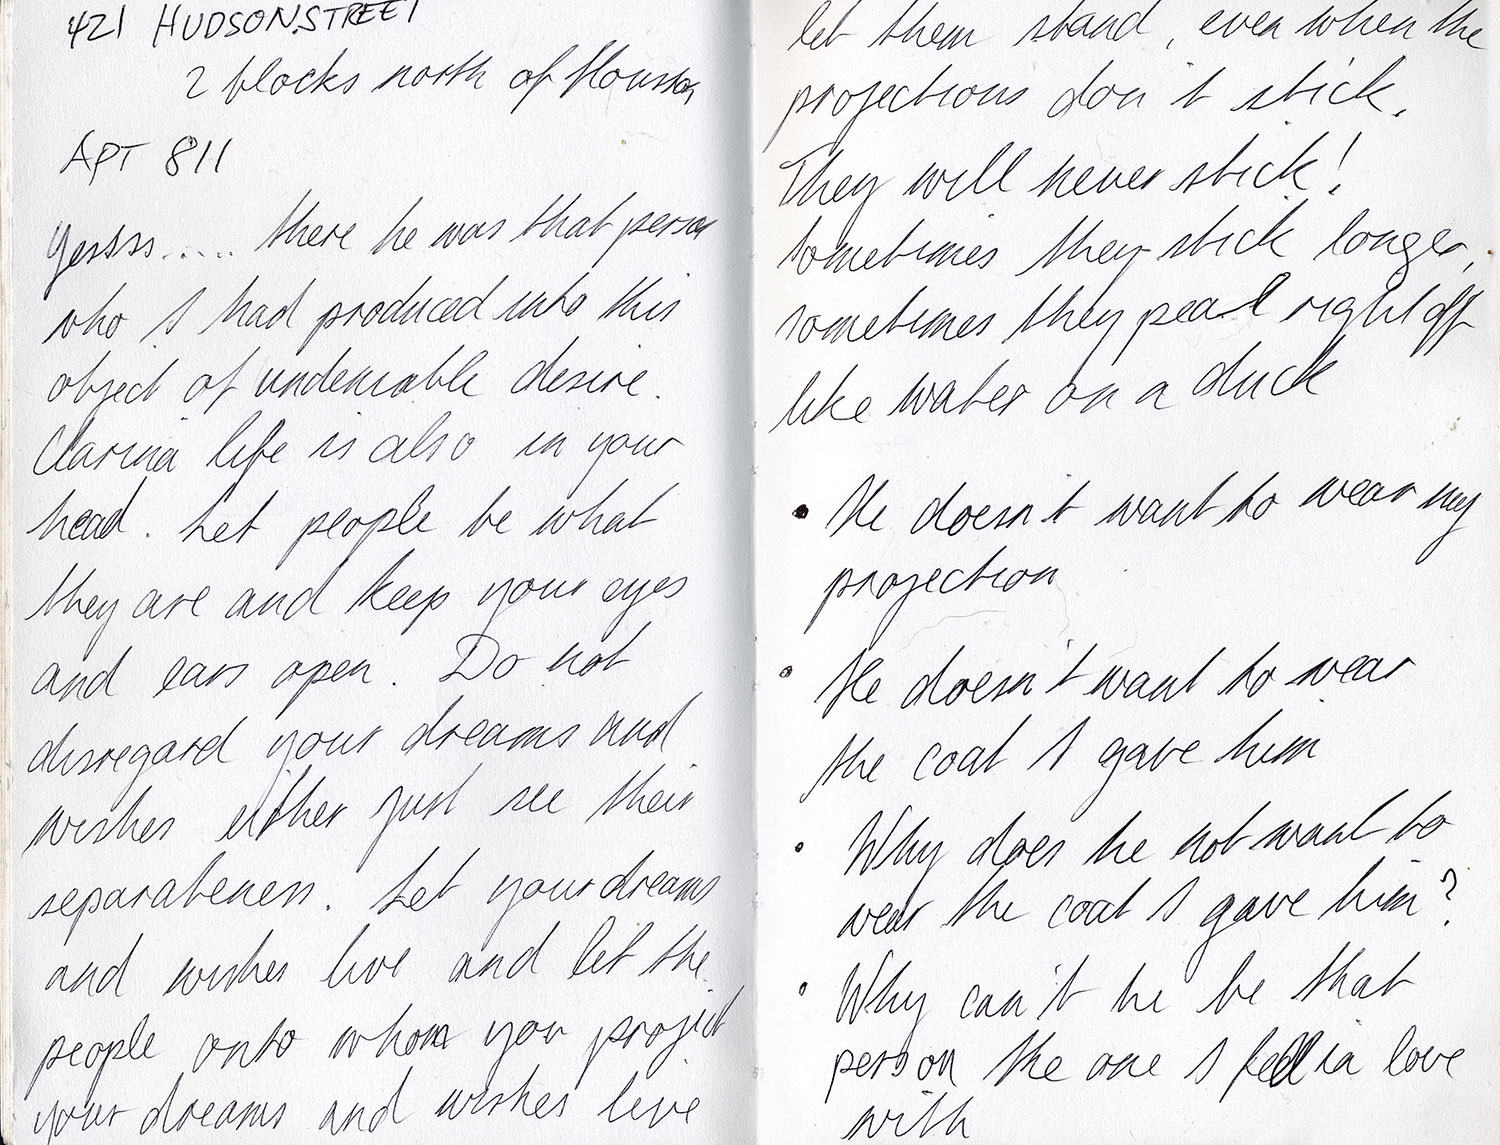 421 HUDSON.STREET
2 blocks north of Houston
APT 811
Yessss..... there he was that person
who I had produced into this
object of undeniable desire.
Clarina life is also in your
head. Let people be what
they are and keep your eyes
and ears open. Do not
disregard your dreams and
wishes either just see their
separateness. Let your dreams
and wishes live and let the
people onto whom you project
your dreams and wishes live
let them stand, even when the
projections don't stick.
They will never stick!
Sometimes they stick longer,
sometimes they peal right off
like water on a duck
• He doesn't want to wear my
projection
• He doesn't want to wear
the coat I gave him
• Why does he not want to
wear the coat I gave him?
• Why can't he be that
person the one I fell in love
with